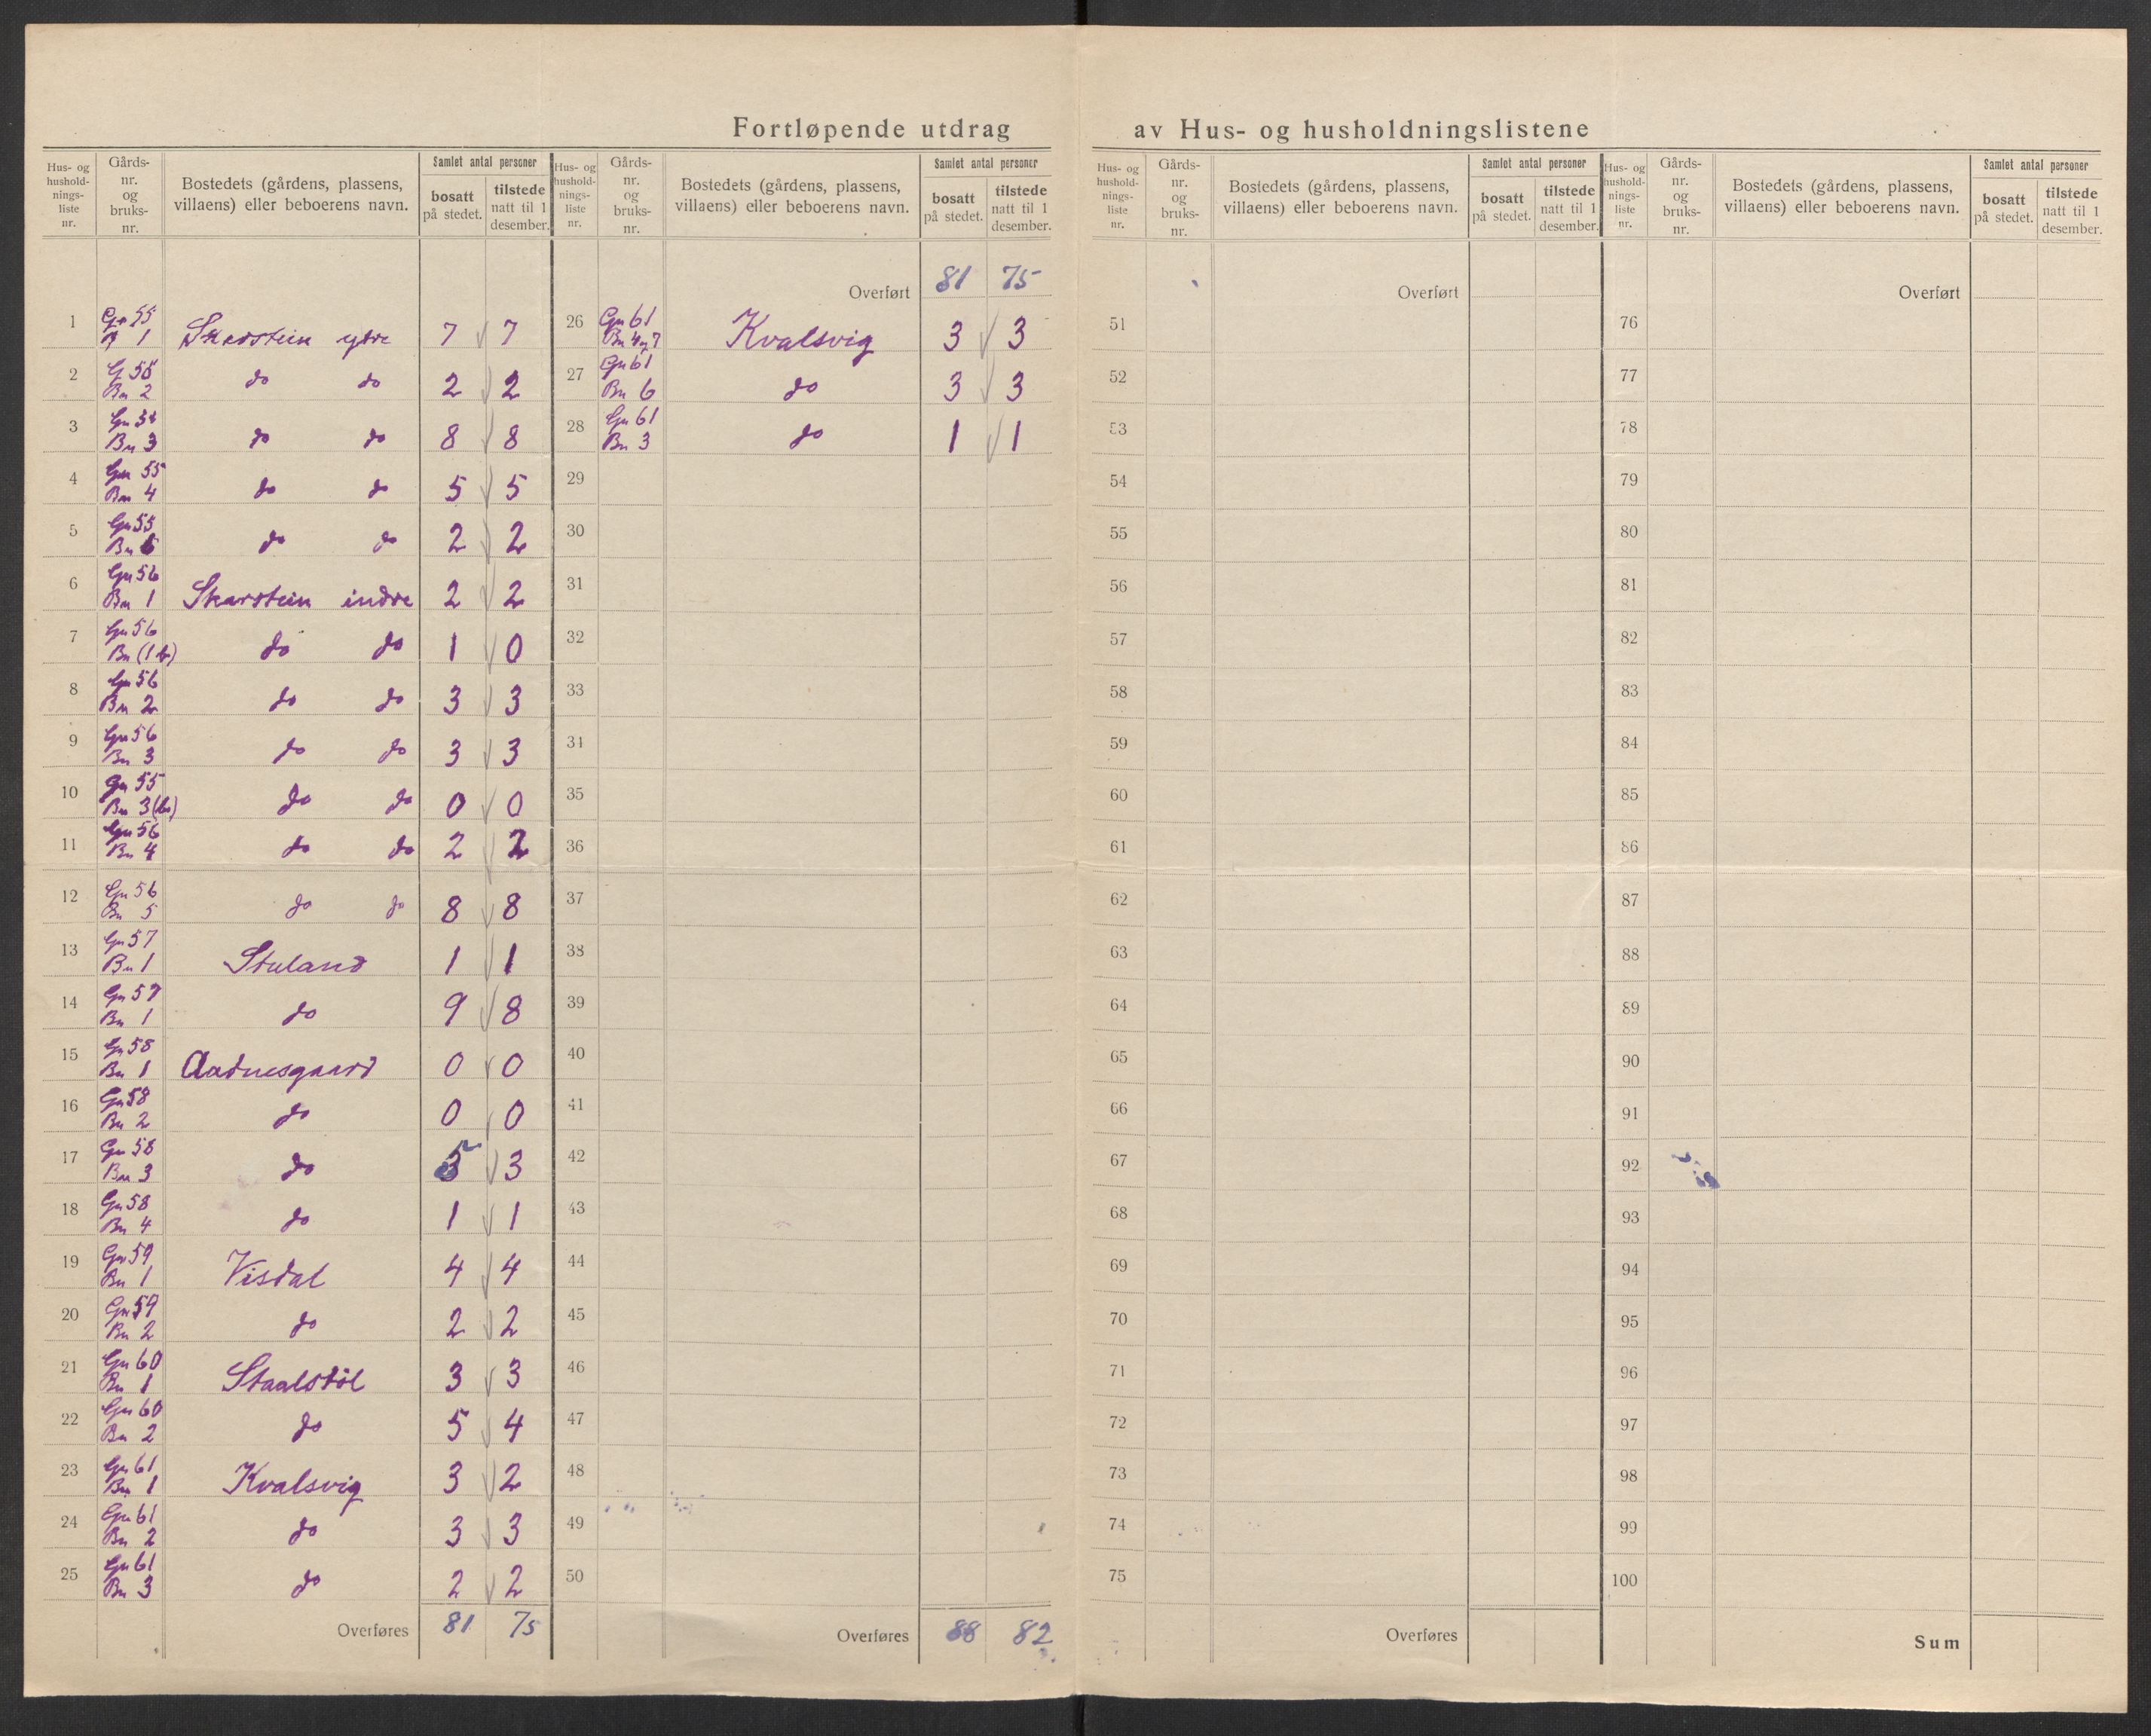 Fortløpende utdrag av Hus- og husholdningslistene
Hus- og hushold-nings-liste nr. Gårds-nr. og bruks-nr. Bostedets (gårdens, plassens, villaens) eller beboerens navn. Samlet antal personer bosatt på stedet. tilstede natt til 1 desember.
1 Gn 55 B 1 Skarstein ytre 7 7
2 G 55 Bn 2 do do 2 2
3 Gn 55 Bn 3 do do 8 8
4 Gn 55 Bn 4 do do 5 5
5 Gn 55 Bn 6 do do 2 2
6 Gn 56 Bn 1 Skarstein indre 2 2
7 Gn 56 Bn (1 b) do do 1 0
8 Gn 56 Bn 2 do do 3 3
9 Gn 56 Bn 3 do do 3 3
10 Gn 55 Bn 3 do do 0 0
11 Gn 56 Bn 4 do do 2 2
12 Gn 56 Bn 5 do do 8 8
13 Gn 57 Bn 1 Stuland 1 1
14 Gn 57 Bn 1 do 9 8
15 Gn 58 Bn 1 Aadnesgaard 0 0
16 Gn 58 Bn 2 do 0 0
17 Gn 58 Bn 3 do 5 3
18 Gn 58 Bn 4 do 1 1
19 Gn 59 Bn 1 Visdal 4 4
20 Gn 59 Bn 2 do 2 2
21 Gn 60 Bn 1 Staalstöl 3 3
22 Gn 60 Bn 2 do 5 4
23 Gn 61 Bn 1 Kvalsvig 3 2
24 Gn 61 Bn 2 do 3 3
25 Gn 61 Bn 3 do 2 2
Overføres 81 75
Hus- og hushold-nings-liste nr. Gårds-nr. og bruks-nr. Bostedets (gårdens, plassens, villaens) eller beboerens navn. Samlet antal personer bosatt på stedet. tilstede natt til 1 desember.
Overført 81 75
26 Gn 61 Bn 4 og 7 Kvalsvig 3 3
27 Gn 61 Bn 6 do 3 3
28 Gn 61 Bn 3 do 1 1
29
30
31
32
33
31
35
36
37
38
39
40
41
42
43
44
45
46
47
48
49
50
Overføres 88 82
Hus- og hushold-nings-liste nr. Gårds-nr. og bruks-nr. Bostedets (gårdens, plassens, villaens) eller beboerens navn. Samlet antal personer bosatt på stedet. tilstede natt til 1 desember.
Overført
51
52
53
54
55
56
57
58
59
60
61
62
63
64
65
66
67
68
69
70
71
72
73
74
75
Overføres
Hus- og hushold-nings-liste nr. Gårds-nr. og bruks-nr. Bostedets (gårdens, plassens, villaens) eller beboerens navn. Samlet antal personer bosatt på stedet. tilstede natt til 1 desember.
Overført
76
77
78
79
80
81
82
83
84
85
86
87
88
89
90
91
92
93
94
95
96
97
98
99
100
Sum